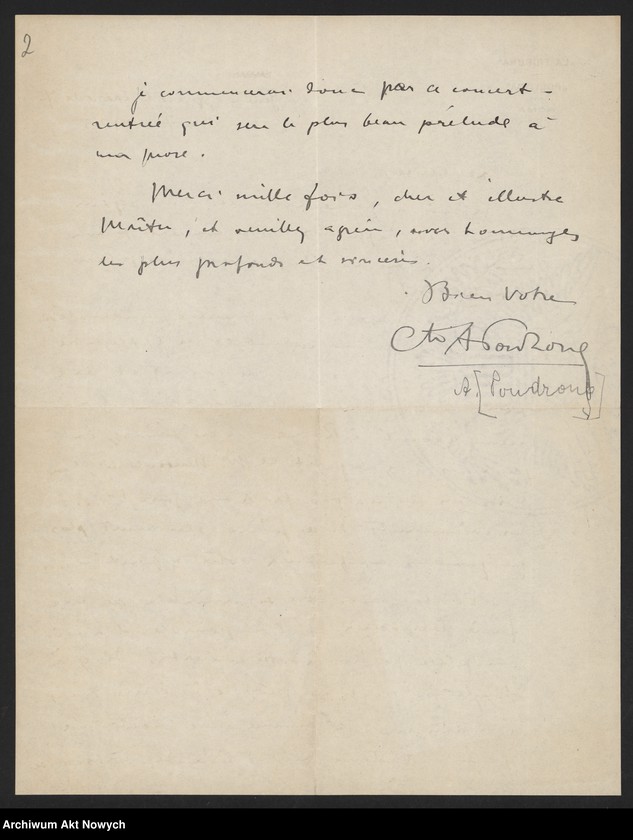 2
je commencerai donc par ce concert-
rentrée qui sera le plus beau prélude à
ma prose.
Merci mille fois, cher et illustre
Maître, et veuillez agréer, mes hommages
les plus profonds et sincères.
Bien Votre
A. [Poudrone]
Archiwum Akt Nowych